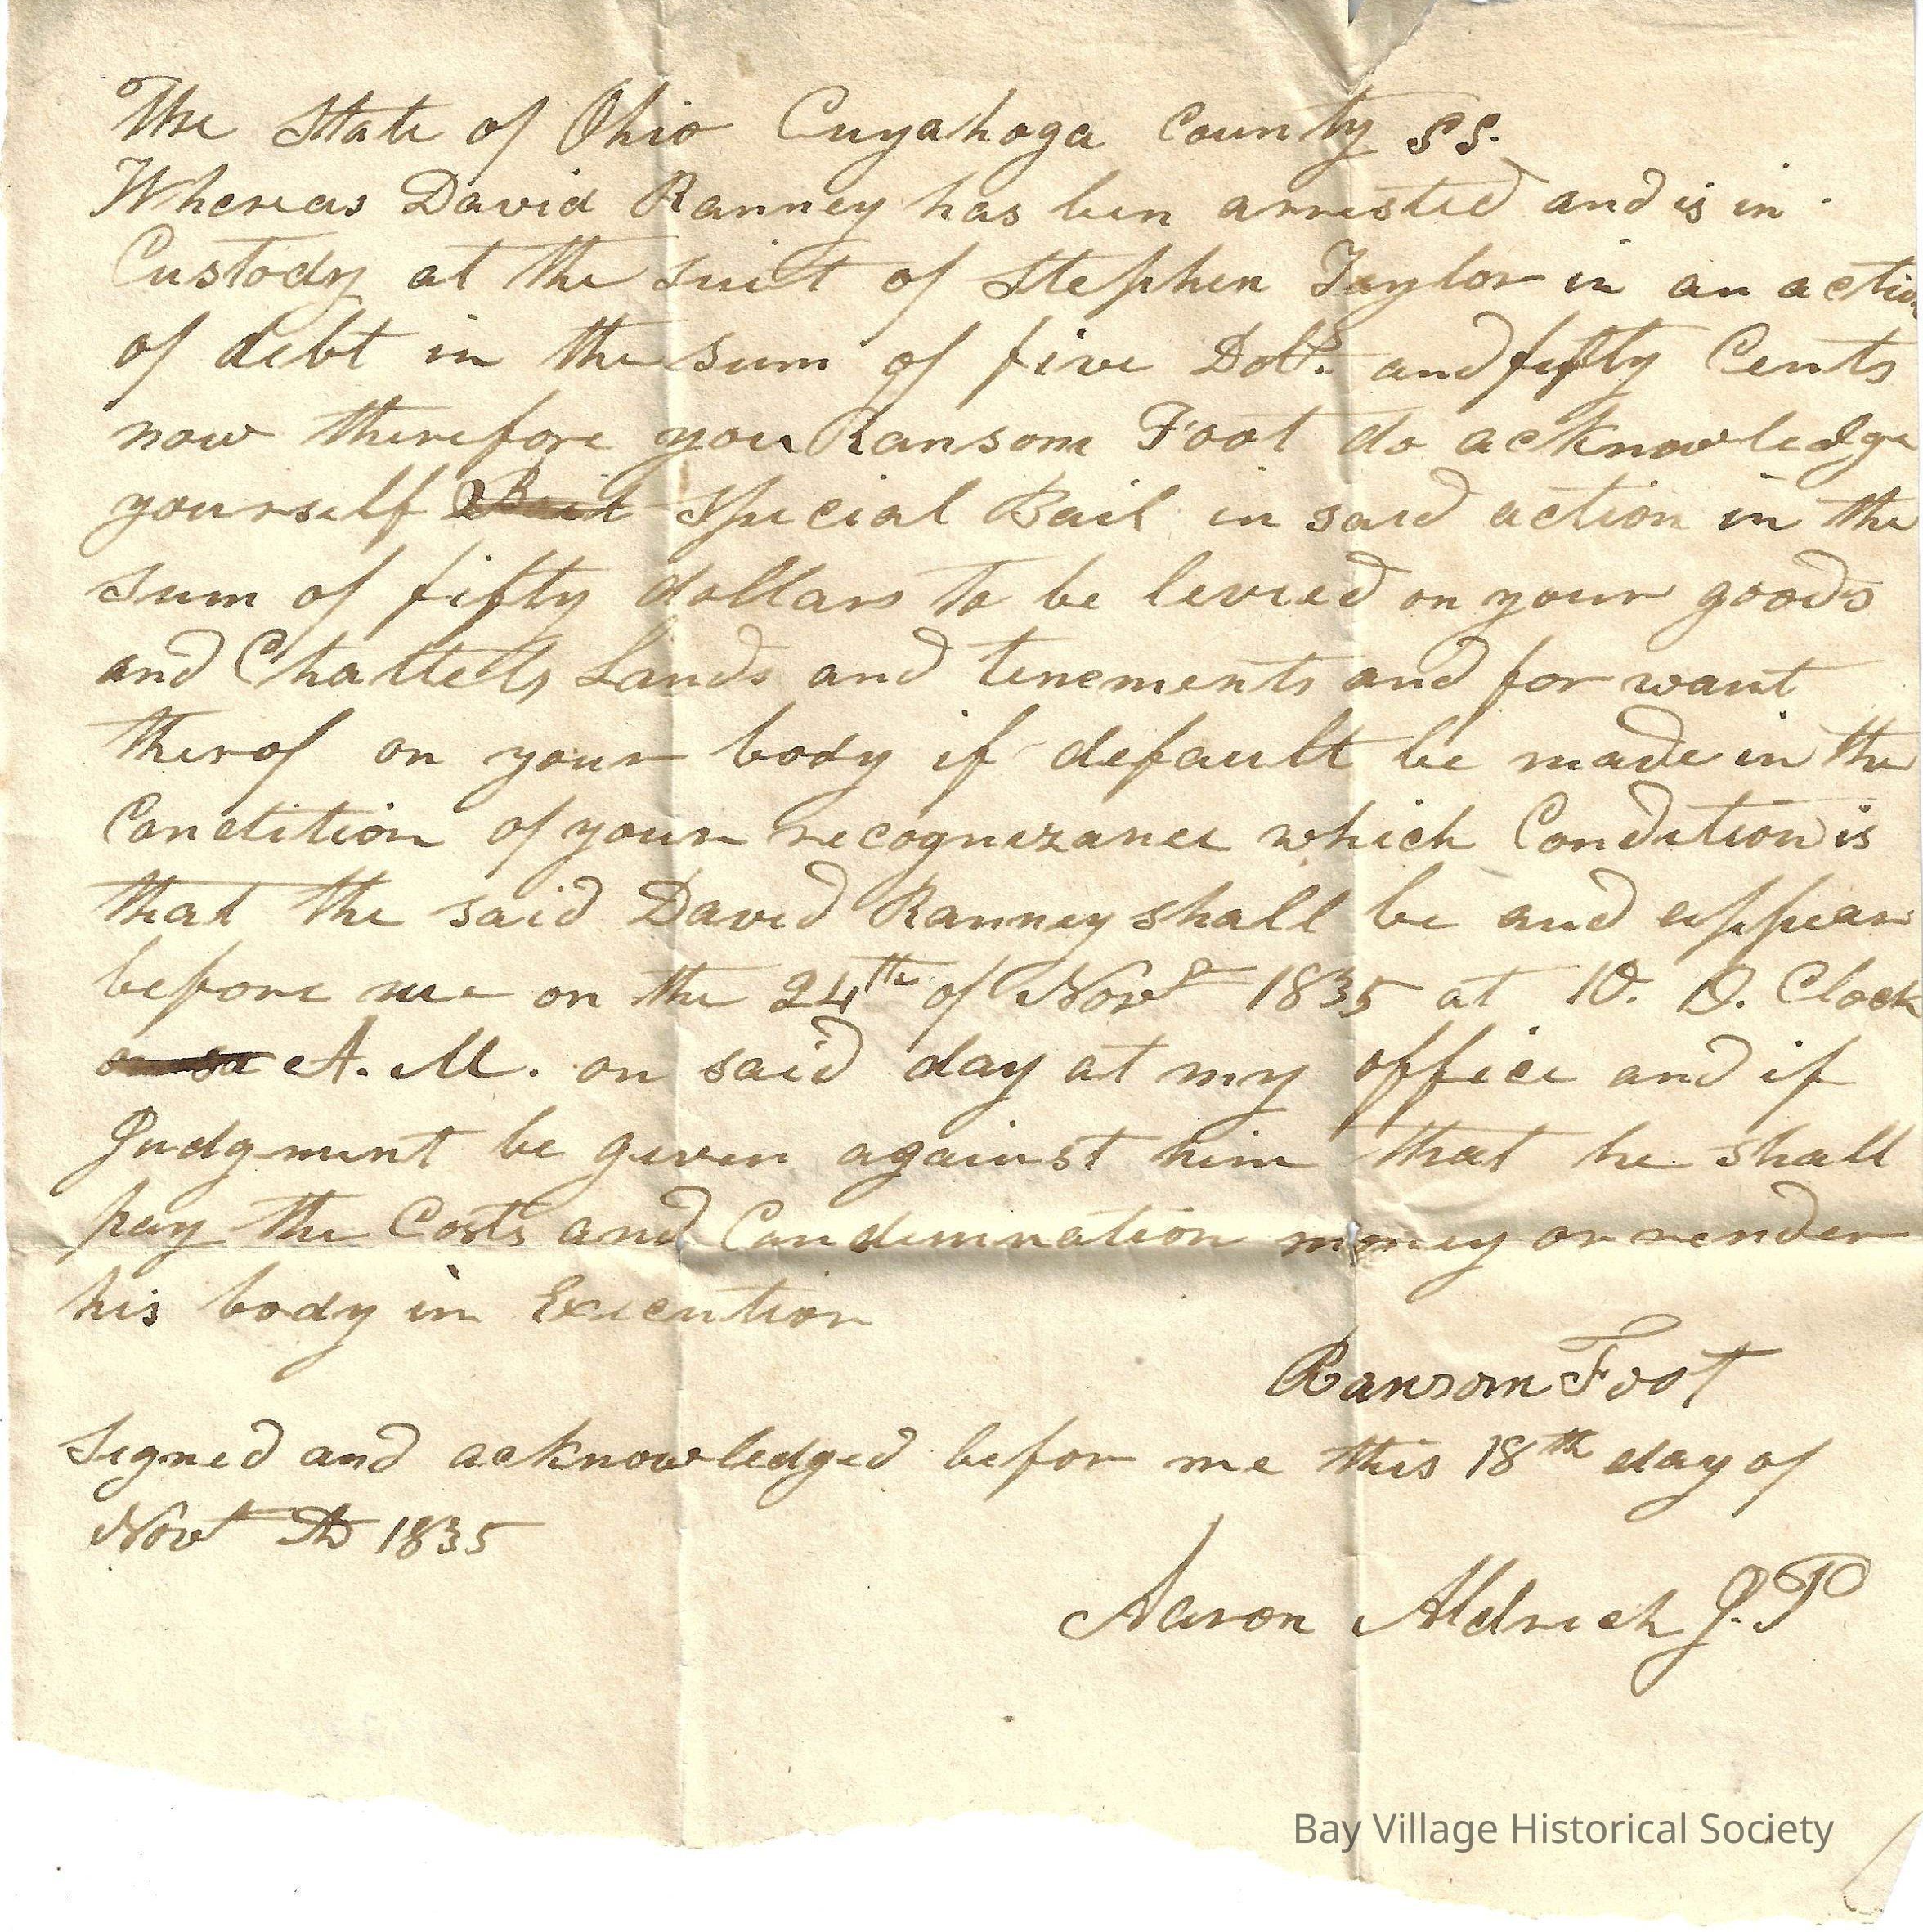 The State of Ohio Cuyahoga County SS.
Whereas David Ranney has ben arrested and is in
Custody at the suit of Stephen Taylor in an action
of debt in the sum of five Dolls. and fifty Cents
now therefore you Ransom Foot do acknowledge
yourself Special Bail in said action in the
sum of fifty dollars to be levied on your goods
and Chattells Lands and tenements and for want
therof on your body if default be made in the
Condition of your recognizance which Condition is
that the said David Ranney shall be and appear
before me on the 24th of Novr 1835 at 10. O. Clock
A. M. on said day at my office and if
Judgment be given against him that he shall
pay the Costs and Condemnation money or render
his body in Execution
Ransom Foot
Signed and acknowledged befor me this 18th day of
Novr AD 1835
Aaron Aldrich J. P
Bay Village Historical Society